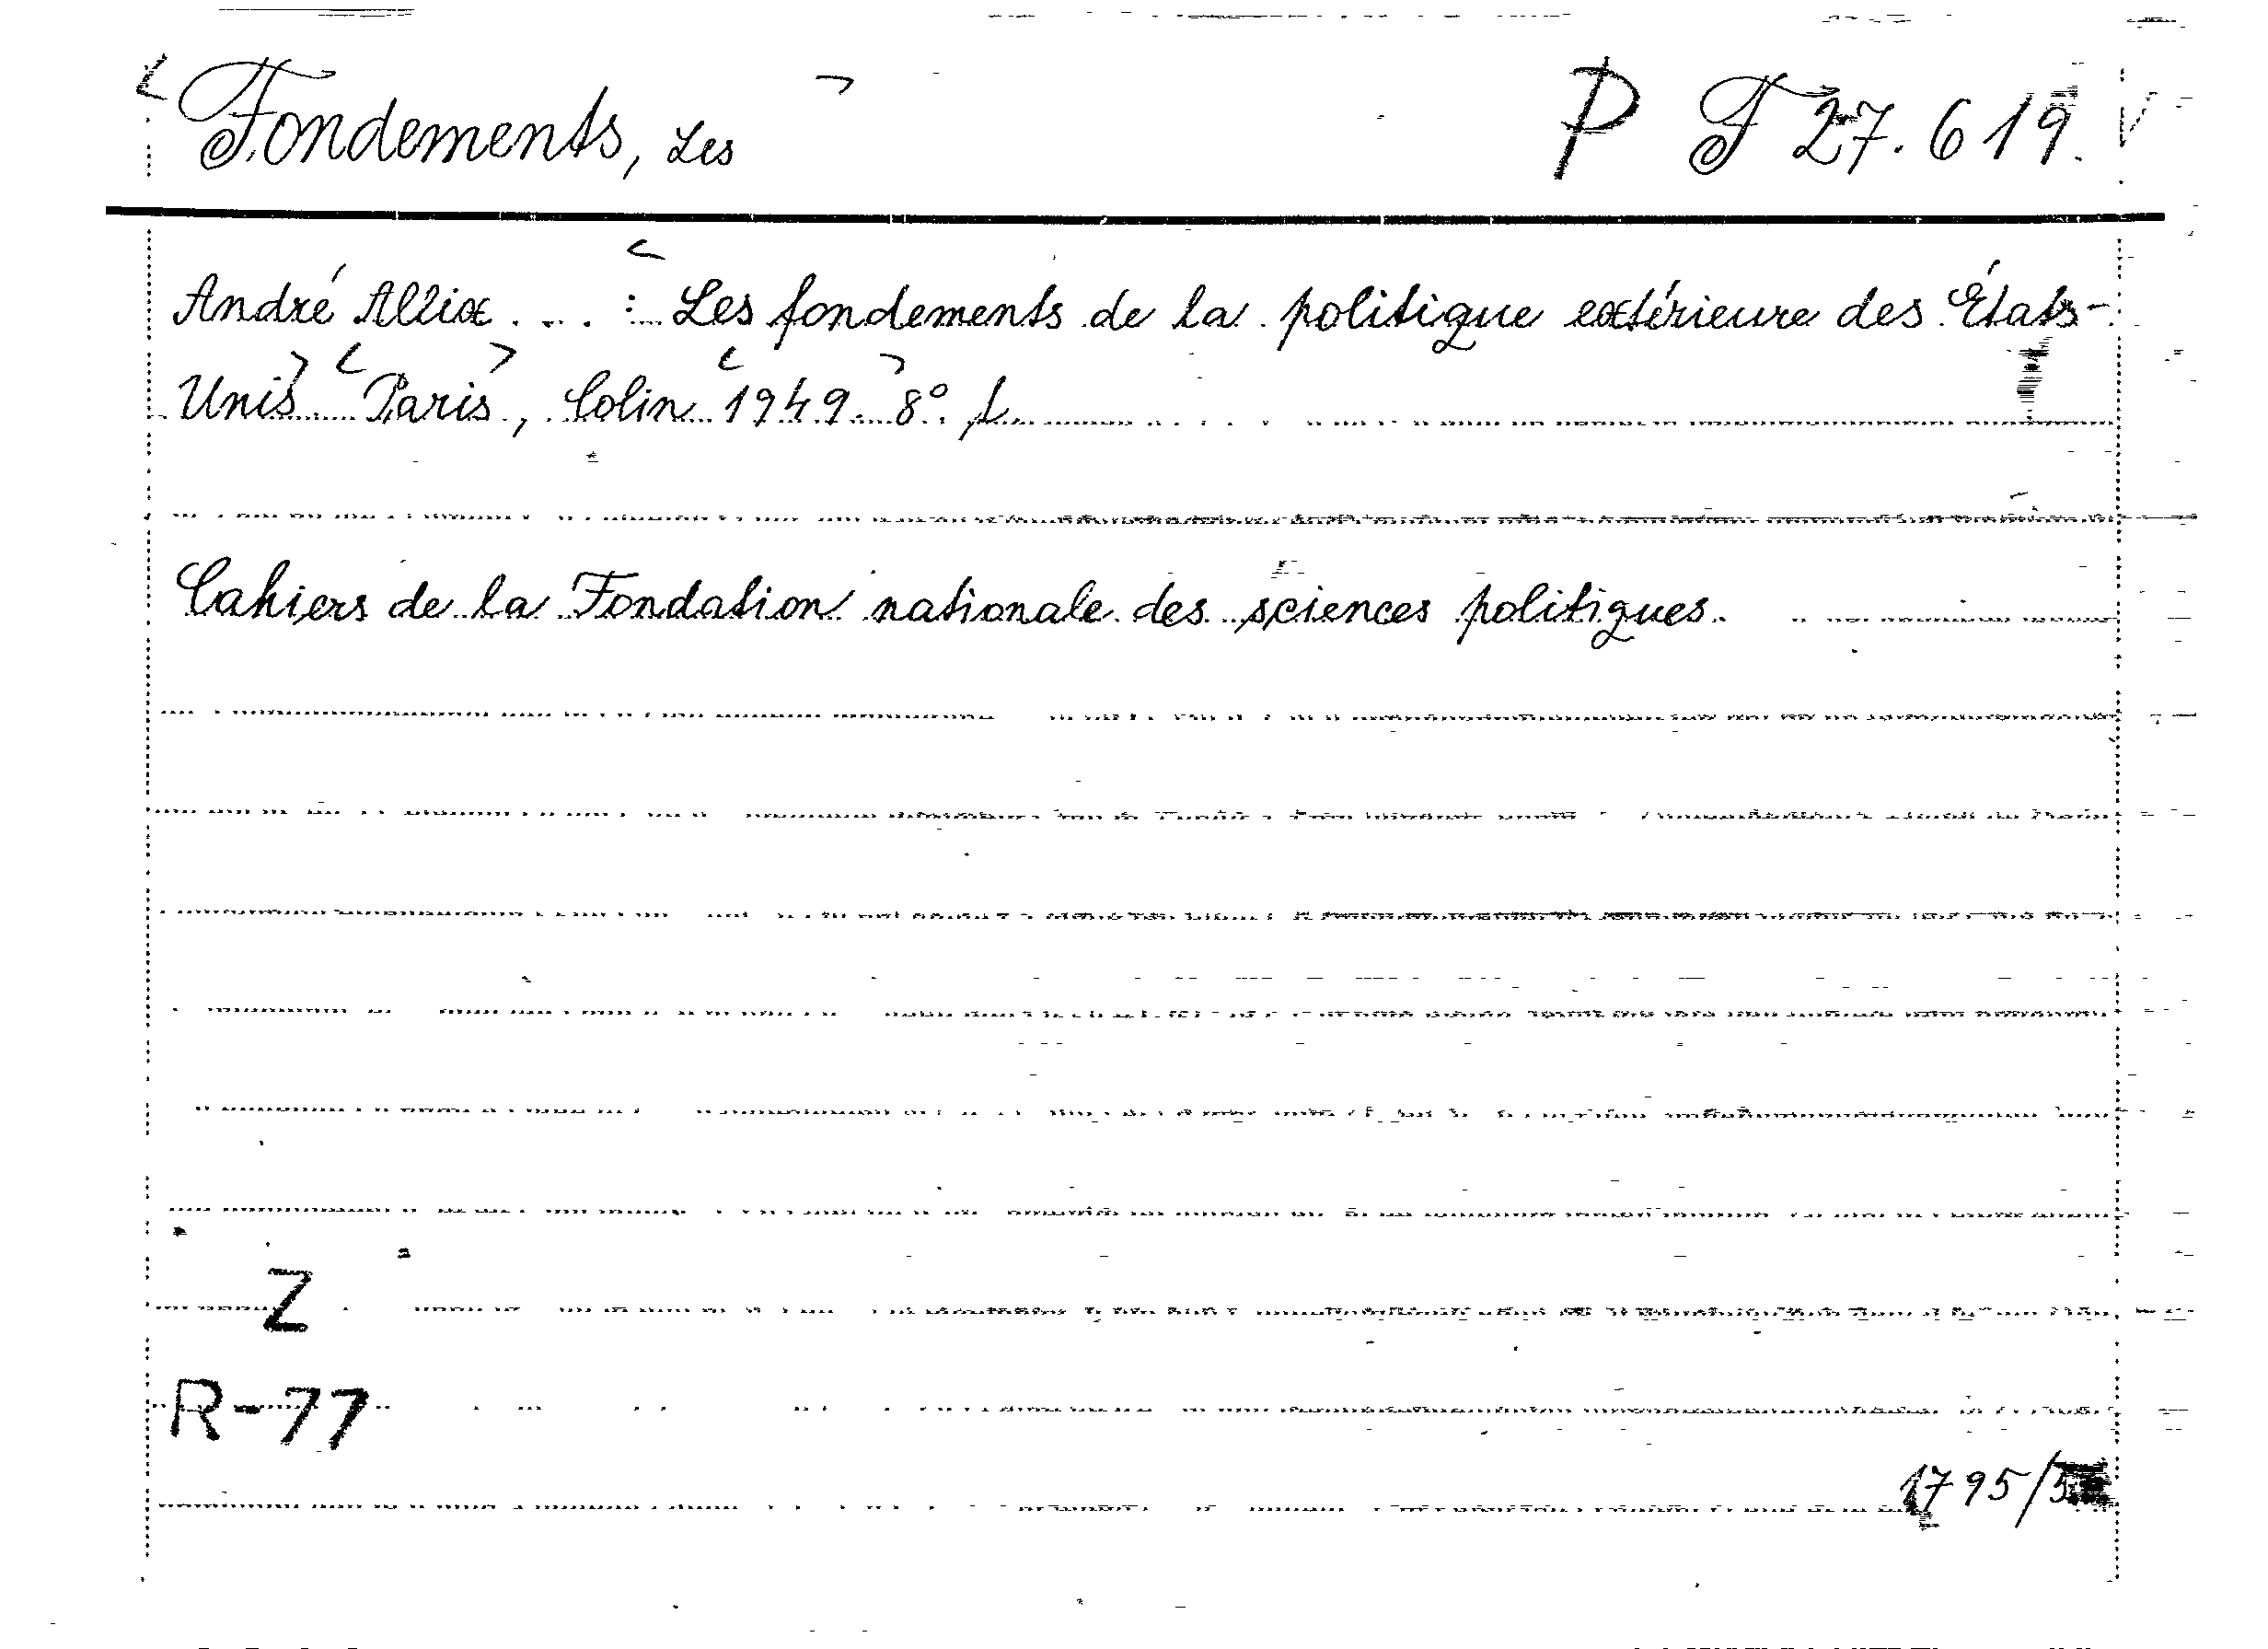 Fondements, Les P F 27.619.
André Allix ... : Les fondements de la politique extérieure des États-
Unis Paris, Colin 1949. 8°.
Cahiers de la Fondation nationale des sciences politiques.
Z
R-77